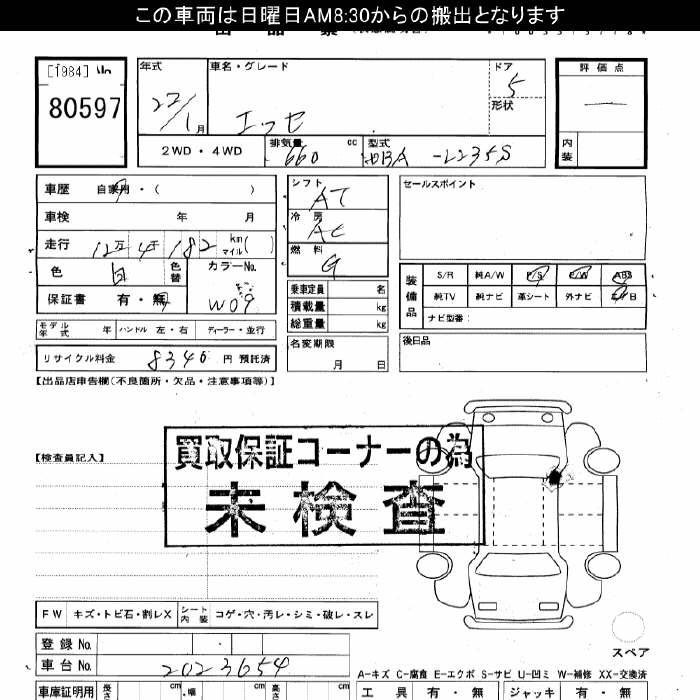 この車両は日曜日AM8:30からの搬出となります
[1984]
80597
年式
22/1月
車名・グレード
エッセ
ドア
5
形状
評価点
内装
2WD・4WD
排気量
660 cc
型式
DBA-L235S
車歴 自家用・( )
車検 年 月
走行 12万4千182 km マイル( )
色 白 色替
カラーNo.
W09
保証書 有・無
モデル年式 年 ハンドル 左・右 ディーラー・並行
リサイクル料金 8340 円 預託済
シフト
AT
冷房
AC
燃料
G
乗車定員 名
積載量 kg
総重量 kg
名変期限
月 日
セールスポイント
装備品
S/R 純A/W P/S P/W ABS
純TV 純ナビ 革シート 外ナビ エアB
ナビ型番:
後日品
【出品店申告欄(不良箇所・欠品・注意事項等)】
【検査員記入】
買取保証コーナーの為
未検査
FW キズ・トビ石・割レX シート内装 コゲ・穴・汚レ・シミ・破レ・スレ
スペア
登録No.
車台No. 2023654
A-キズ C-腐食 E-エクボ S-サビ U-凹ミ W-補修 XX-交換済
車庫証明用 長さ cm 幅 cm 高さ cm
工具 有・無 ジャッキ 有・無